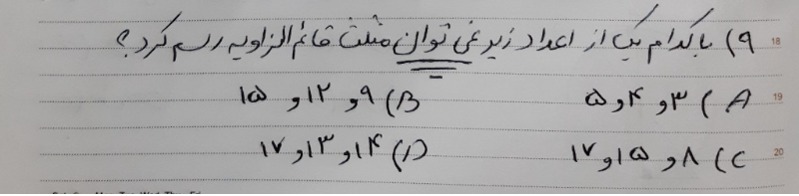 ۹) با کدام یک از اعداد زیر نمی توان مثلث قائم الزاویه رسم کرد؟ 18
A) ۳ و ۴ و ۵ B) ۹ و ۱۲ و ۱۵ 19
C) ۸ و ۱۵ و ۱۷ D) ۱۴ و ۱۳ و ۱۷ 20